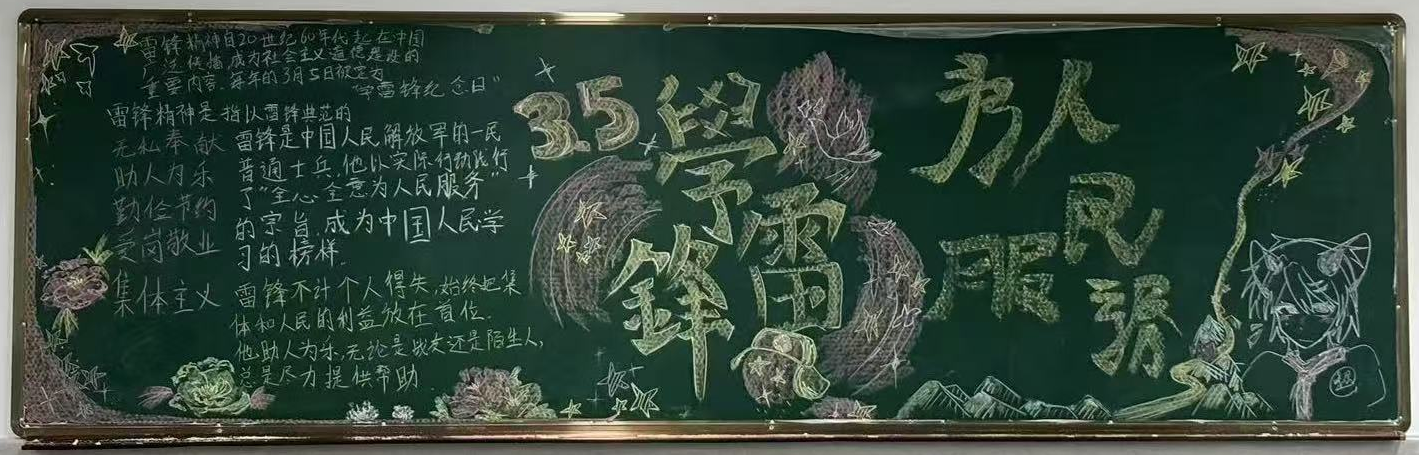 雷锋精神自20世纪60年代起在中国
广泛传播成为社会主义道德建设的
重要内容.每年的3月5日被定为
"学雷锋纪念日"
雷锋精神是指以雷锋典范的
无私奉献
助人为乐
勤俭节约
爱岗敬业
集体主义
雷锋是中国人民解放军的一民
普通士兵,他以实际行动践行
了"全心全意为人民服务"
的宗旨,成为中国人民学
习的榜样.
雷锋不计个人得失,始终把集
体和人民的利益放在首位.
他助人为乐,无论是战友还是陌生人,
总是尽力提供帮助.
3.5
學
雷
鋒
为人
民
服
务